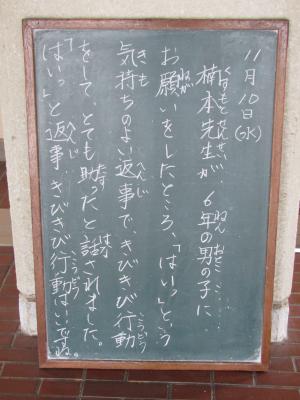 11月10日(水)
楠本先生が、6年の男の子に
お願いをしたところ、「はいっ」という
気持ちのよい返事で、きびきび行動
をして、とても助かったと話されました。
「はいっ」と返事、きびきび行動はいいですね。